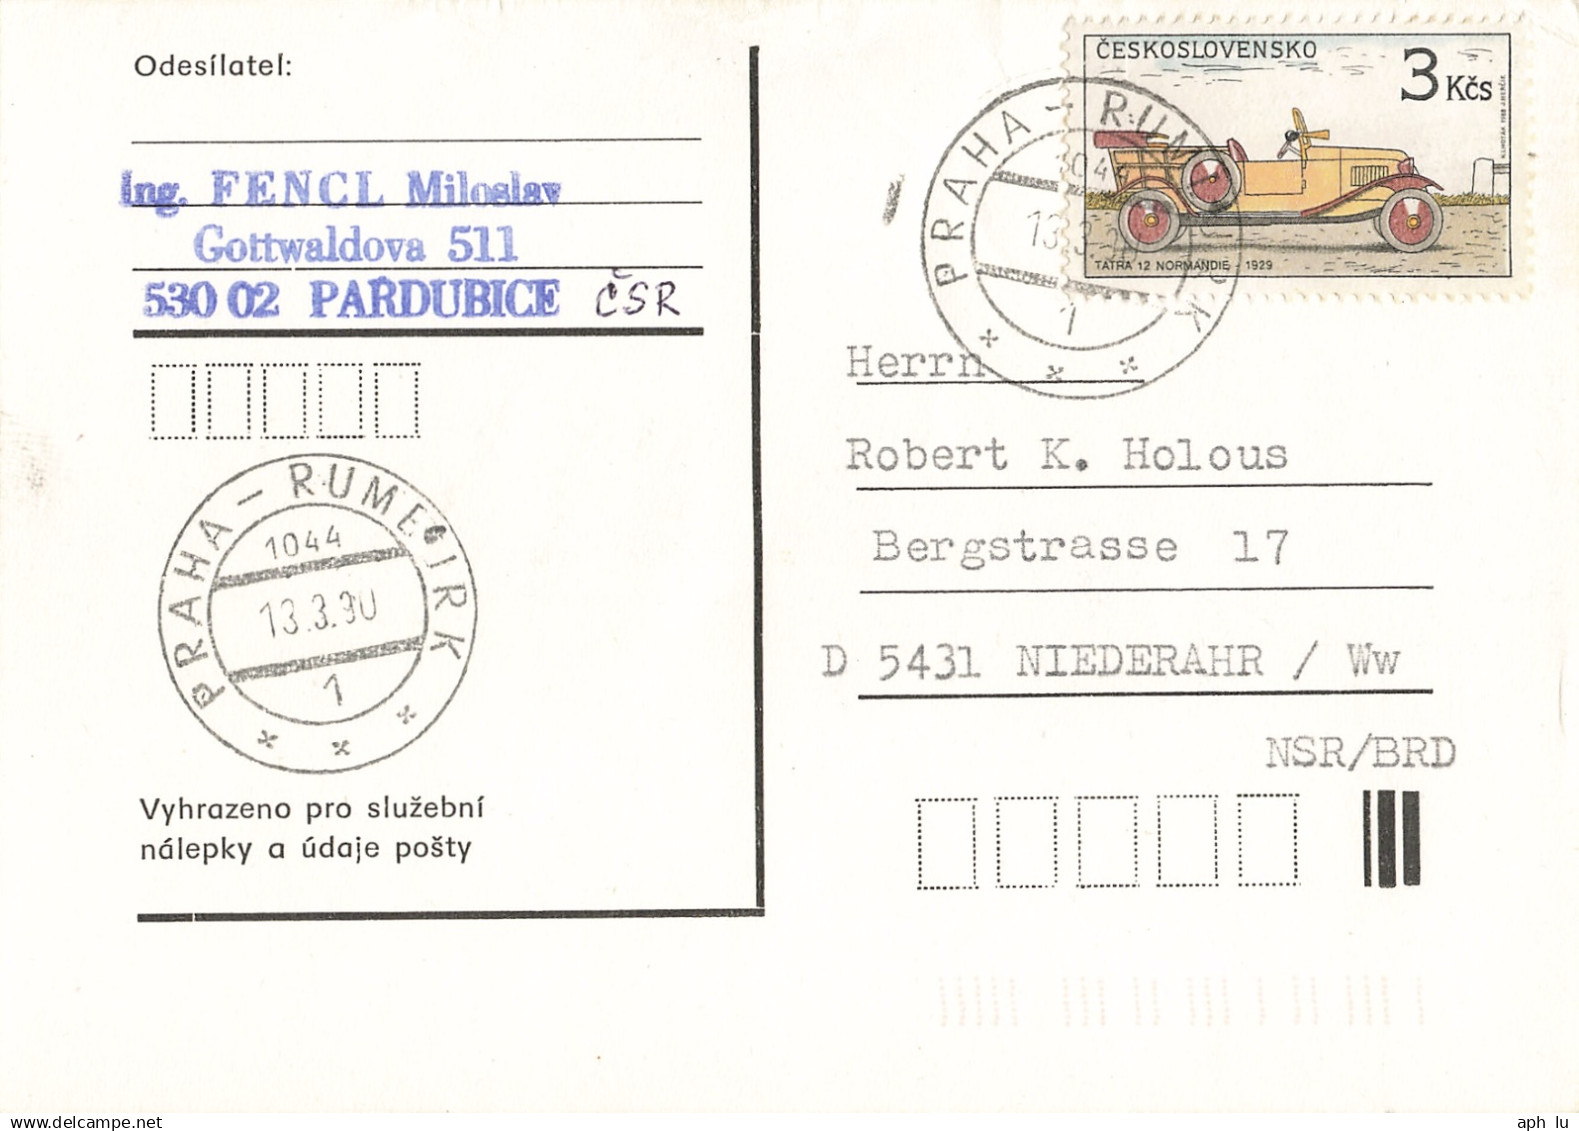 Odesílatel:
Ing. FENCL Miloslav
Gottwaldova 511
530 02 PARDUBICE ČSR
PRAHA - RUMEJRK
1044
13.3.90
1
Vyhrazeno pro služební
nálepky a údaje pošty
ČESKOSLOVENSKO
3 Kčs
TATRA 12 NORMANDIE 1929
PRAHA - RUM
1044
13.3.90
1
Herrn
Robert K. Holous
Bergstrasse 17
D 5431 NIEDERAHR / Ww
NSR/BRD
www.delcampe.net
aph_lu